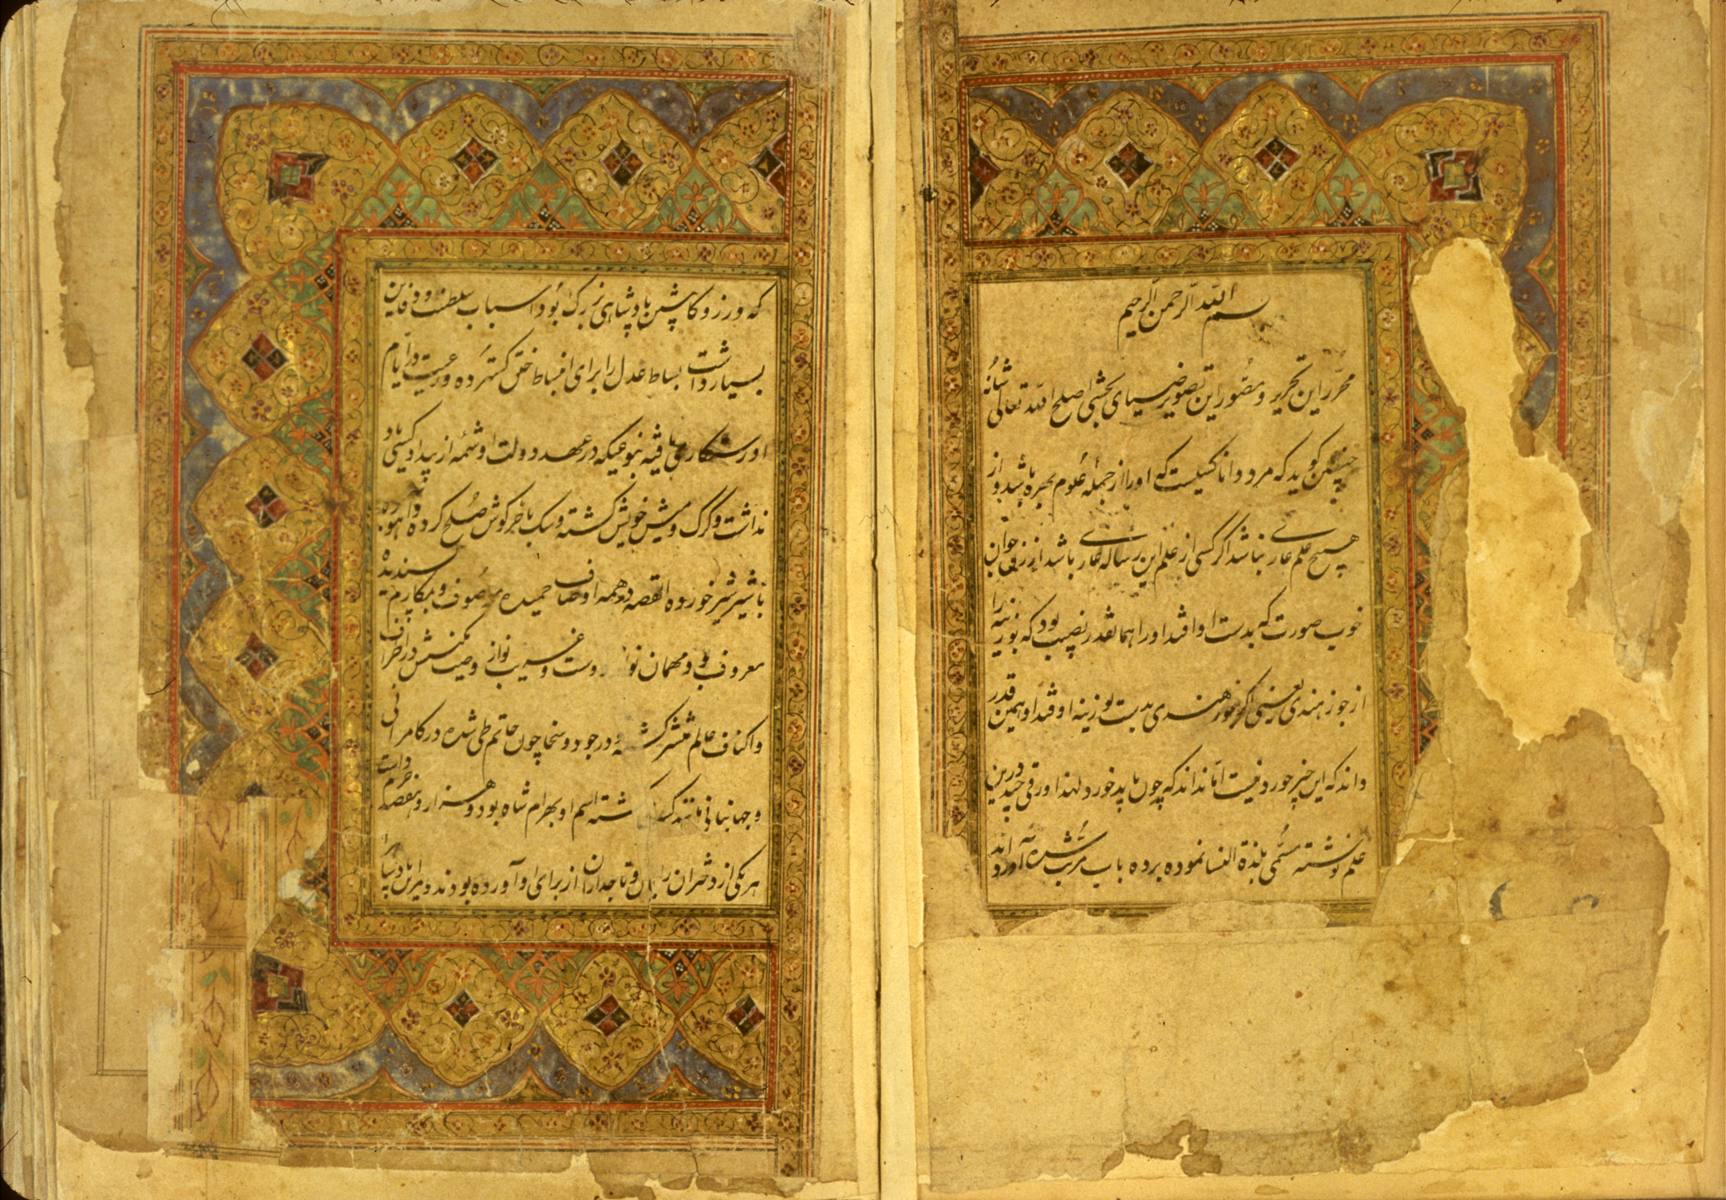 بسم الله الرحمن الرحیم
محرر این تحریر و مصور این تصویر ضیای نخشبی اصلح الله تعالی شانه
چنین گوید که مرد دانا کسیست که او را از جملهٔ علوم بهره باشد و از
هیچ علم عاری نباشد اگر کسی از علم این رساله عاری باشد از زنی جوان
خوب صورت که بدست او افتد او را همانقدر نصیب بود که بوزینه را
از جوز هندی یعنی اگر جوز هندی بدست بوزینه افتد او همین قدر
داند که این چیز خوردنیست اما نداند که چون باید خورد لهذا ورقی چند درین
علم نوشته مسمی بلذة النسا نموده برده باب مرتب شد آورده‌اند
که در زو کا پادشاهی بزرگ بود اسباب سلطنت و دفاین
بسیار داشت بساط عدل را برای انبساط خلق گسترده و رعیت در ایام
او نبوعیکه در عهد دولت او شمه از بیداد کسی یاد
نداشت و گرگ و میش خویش گشته و سگ با خرگوش صلح کرده و آهو بره
با شیر شیر خورده القصه همه اوصاف حمیده موصوف و بمکارم پسندیده
معروف و مهمان دوست و غریب نواز و صیت در اطراف
و اکناف عالم منتشر گشته و در جود و سخا چون حاتم طی شده در کامرانی
و جهانبانی اسم او بهرام شاه بود و هزار و هفصد حرم داشت
هر یکی از دختران و تاجداران از برای او آورده بودند وزیر این پادشاه را